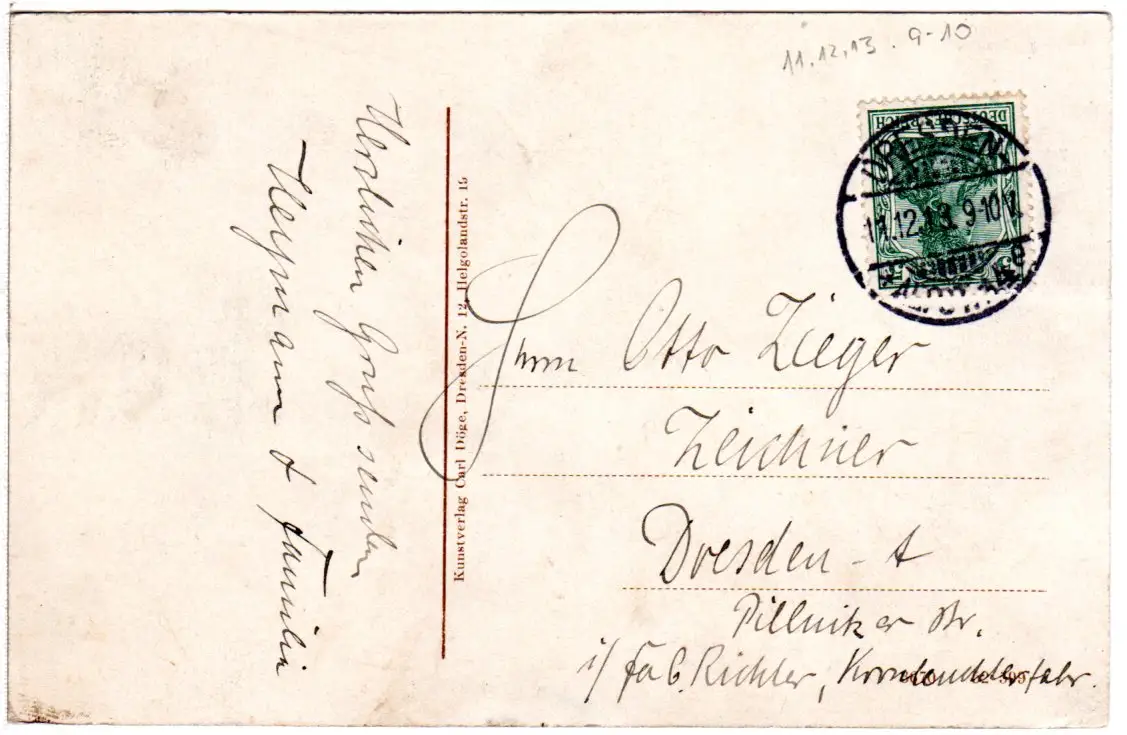 11.12.13. 9-10
DEUTSCHES REICH
DRESDEN
11.12.13. 9-10 V.
Herzlichen Gruß senden
Hermann & Familie
Kunstverlag Carl Döge, Dresden-N. 12, Helgolandstr. 15
Herrn Otto Zieger
Zeichner
Dresden - A
Pillnitzer Str.
i/ Fa C. Richter,